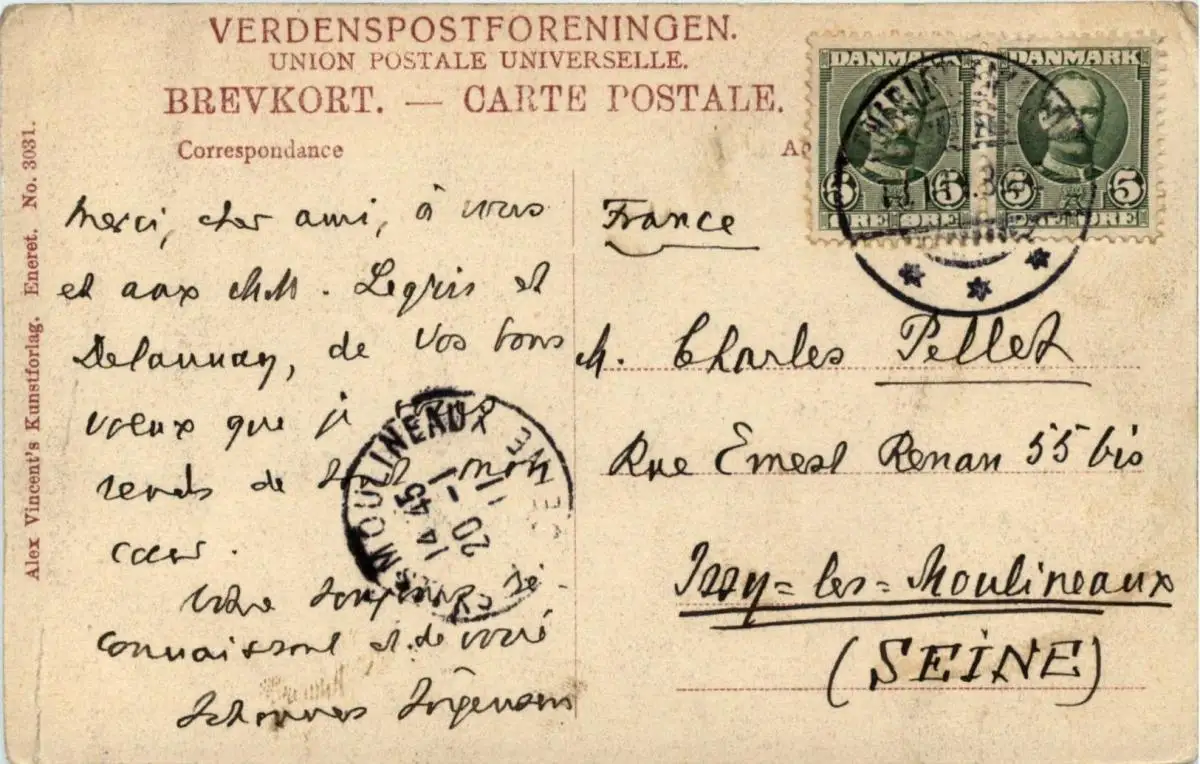 VERDENSPOSTFORENINGEN.
UNION POSTALE UNIVERSELLE.
BREVKORT. — CARTE POSTALE.
Correspondance
Alex Vincent's Kunstforlag. Eneret. No. 3031.
DANMARK
DANMARK
5 5
ØRE ØRE
5 5
ØRE
Merci, cher ami, à vous
et aux M.M. Legris et
Delaunay, de vos bons
vœux que je vous
rends de tout mon
cœur.
Votre toujours re-
connaissant et dévoué
Johannes Jörgensen
France
M. Charles Pellet
Rue Ernest Renan 55 bis
Issy=les=Moulineaux
(SEINE)
MOULINEAUX
14 45
20 - 1
11